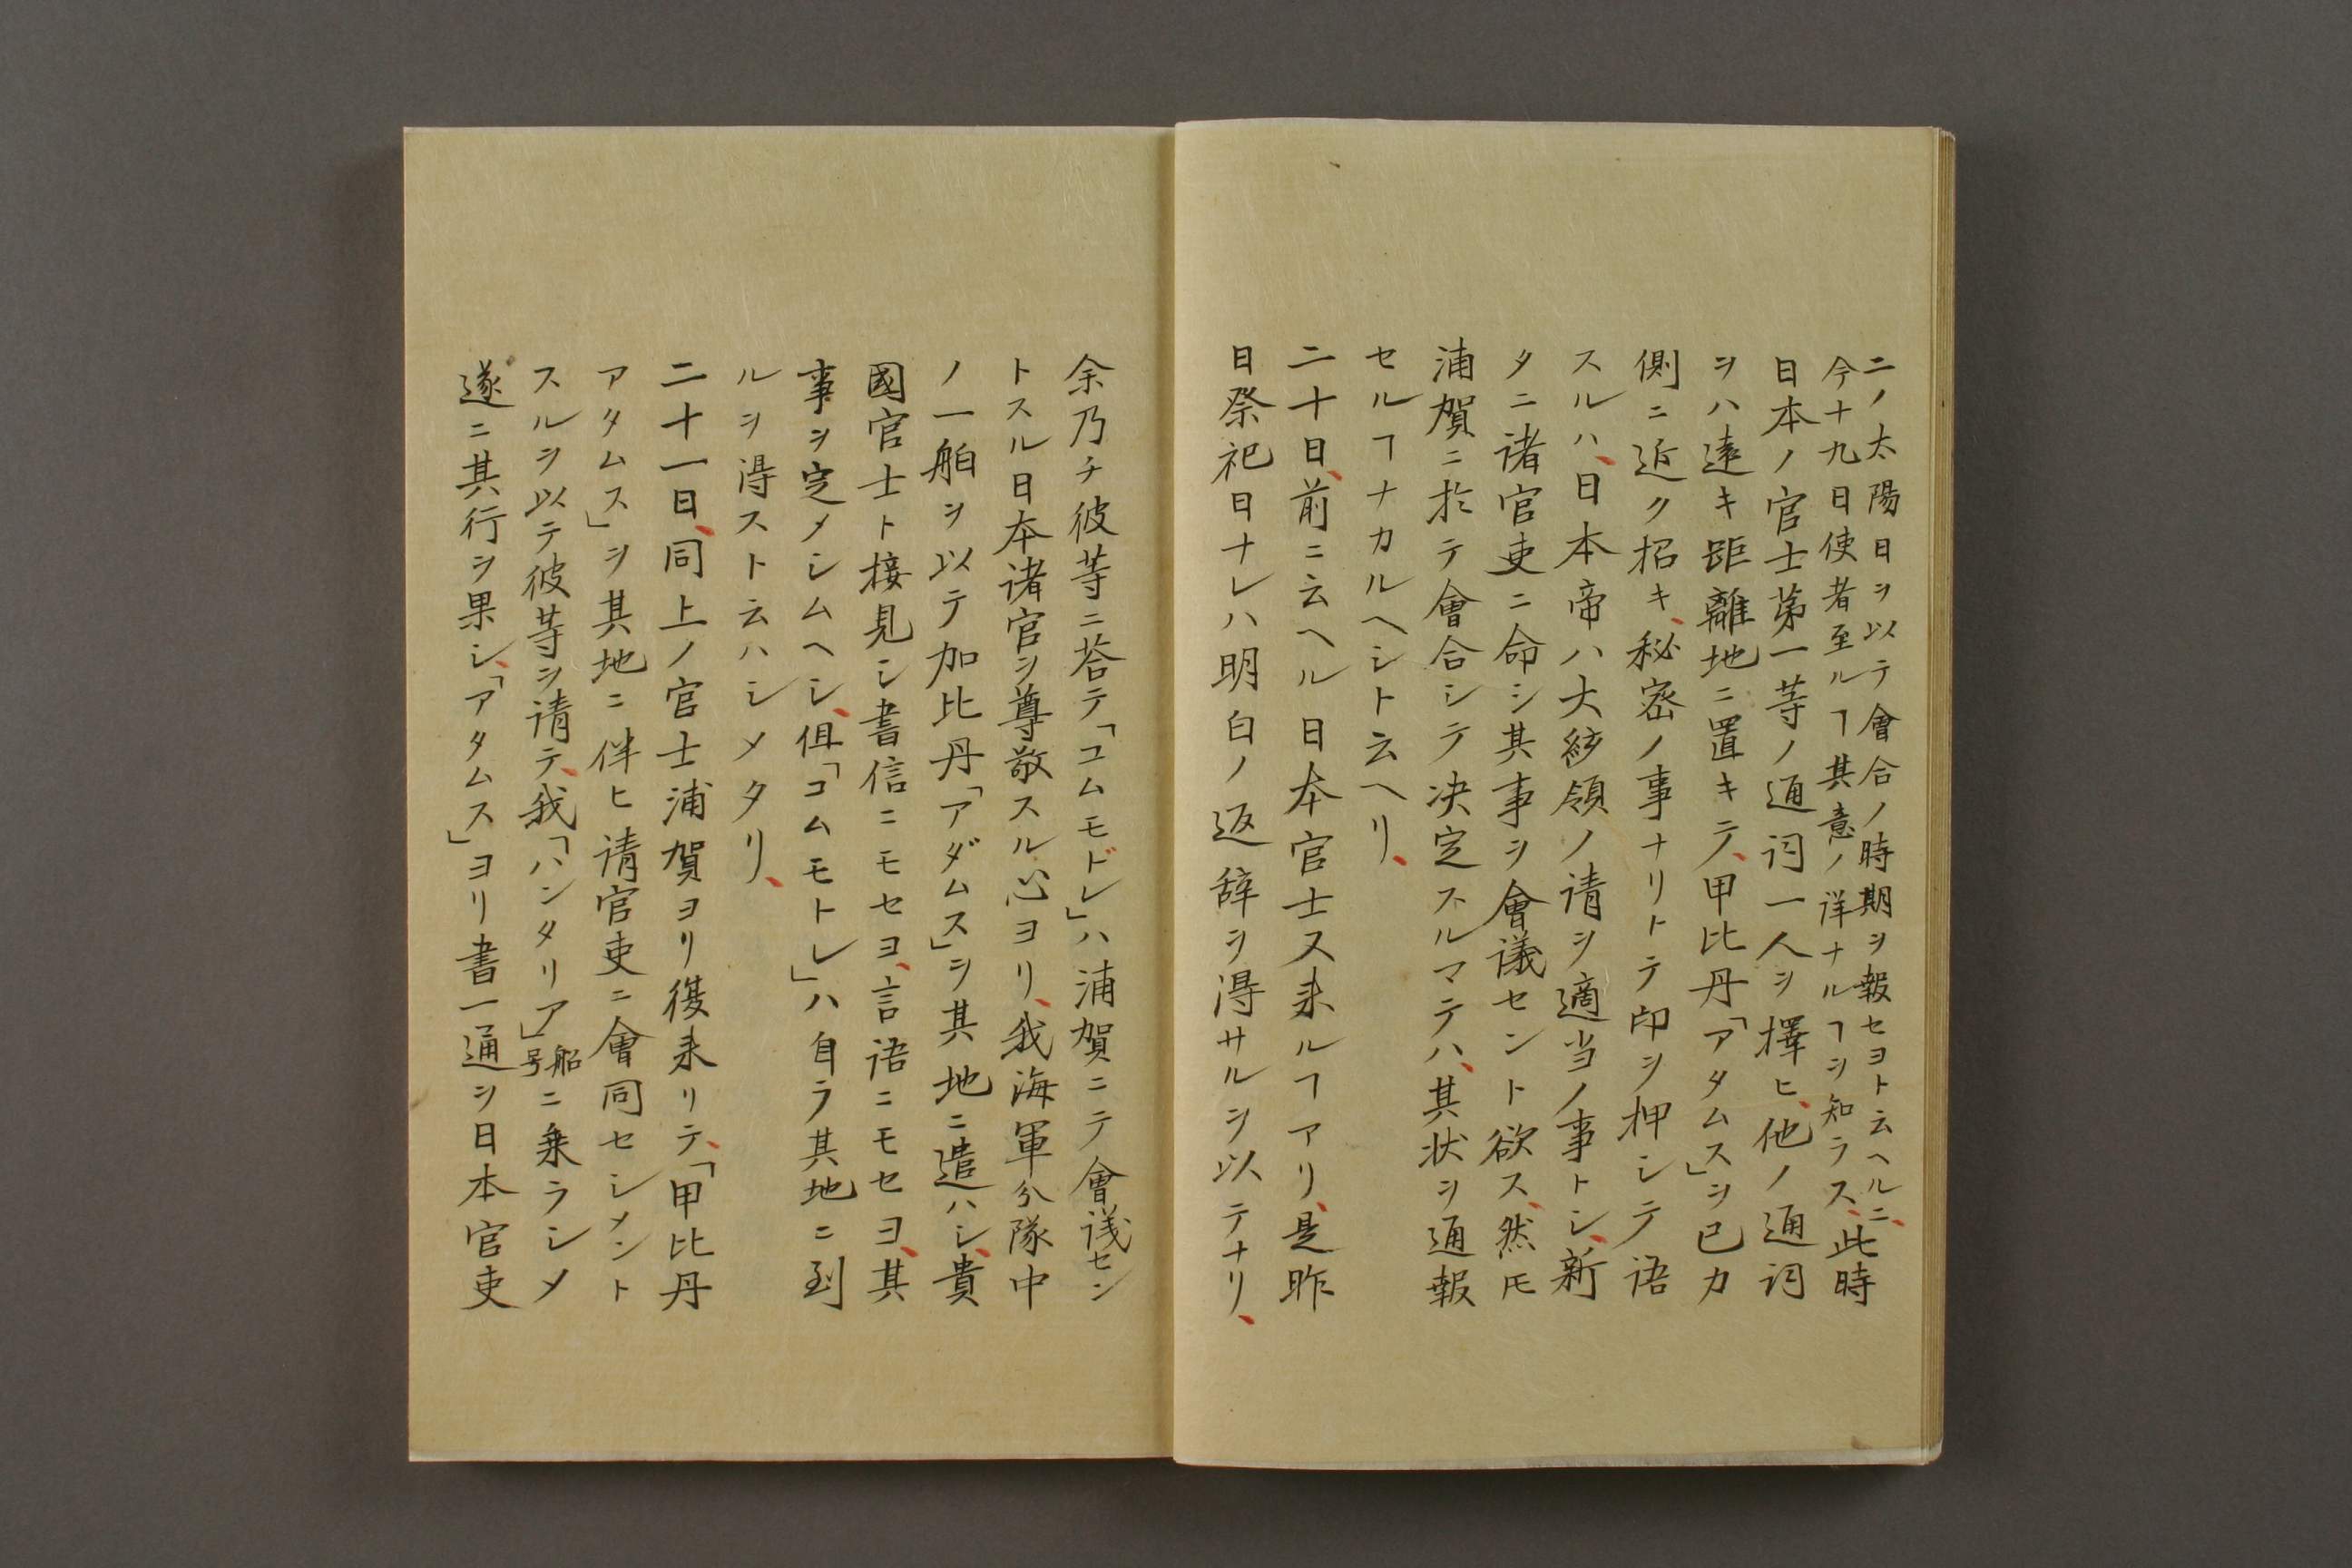 ニノ太陽日ヲ以テ會合ノ時期ヲ報セヨト云ヘルニ、
今十九日使者至ルヿ其意ノ詳ナルヿヲ知ラス、此時
日本ノ官士第一等ノ通詞一人ヲ擇ヒ、他ノ通詞
ヲハ遠キ距離地ニ置キテ、甲比丹「アタムス」ヲ已カ
側ニ近ク招キ、秘密ノ事ナリトテ印ヲ押シテ語
スルハ、日本帝ハ大統領ノ请ヲ適当ノ事トシ、新
タニ諸官吏ニ命シ其事ヲ會議セント欲ス、然𪜈
浦賀ニ於テ會合シテ决定スルマテハ、其状ヲ通報
セルヿナカルヘシト云ヘリ、
二十日、前ニ云ヘル日本官士又来ルヿアリ、是昨
日祭祀日ナレハ明白ノ返辞ヲ得サルヲ以テナリ、
余乃チ彼等ニ荅テ「コムモドレ」ハ浦賀ニテ會議セン
トスル日本诸官ヲ尊敬スル心ヨリ、我海軍分隊中
ノ一舶ヲ以テ加比丹「アダムス」ヲ其地ニ遣ハシ、貴
國官士ト接見シ書信ニモセヨ、言语ニモセヨ、其
事ヲ定メシムヘシ、但「コムモトレ」ハ自ラ其地ニ到
ルヲ得ストム云ハシメタリ、
二十一日、同上ノ官士浦賀ヨリ復来リテ、「甲比丹
アタムス」ヲ其地ニ伴ヒ请官吏ニ會同セシメント
スルヲ以テ彼等ヲ请テ、我「ハンタリア」船号ニ乗ラシメ
遂ニ其行ヲ果シ、「アタムス」ヨリ書一通ヲ日本官吏